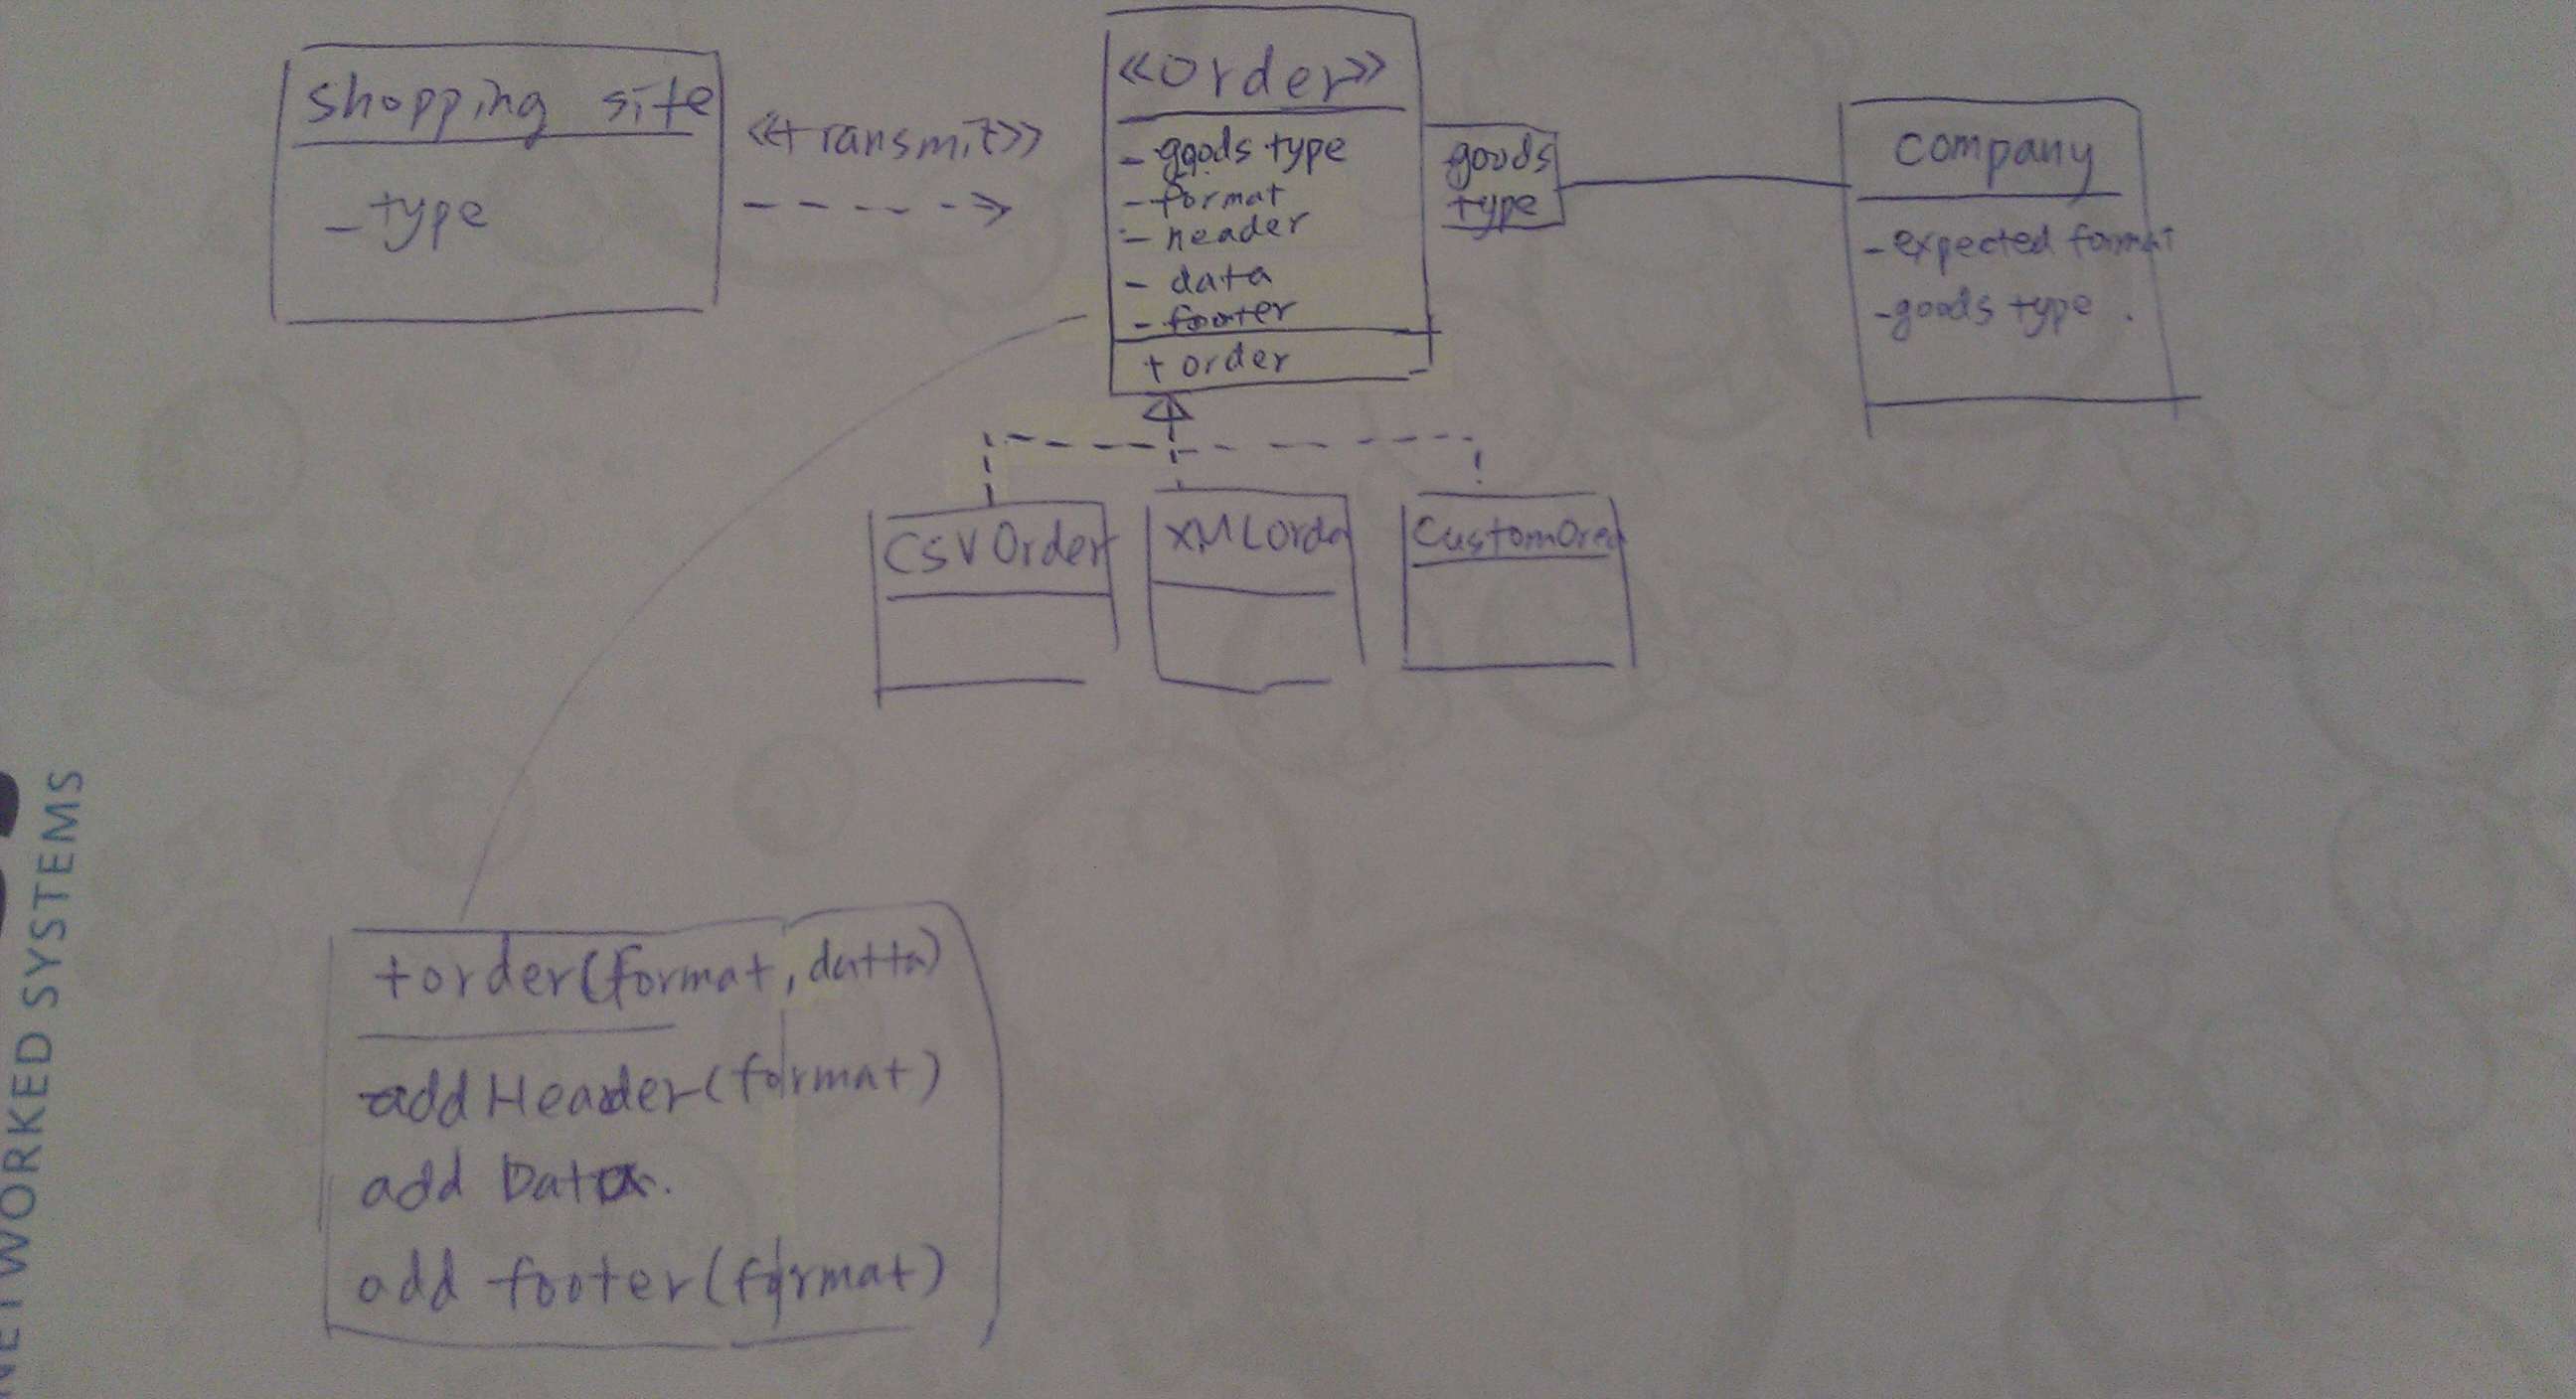 shopping site
- type
<<transmit>>
<<order>>
- goods type
- format
- header
- data
- footer
+ order
goods
type
company
- expected format
- goods type .
CSVOrder
XMLOrder
CustomOreo
+order(format, datta)
addHeader(format)
add Data.
add footer(format)
NETWORKED SYSTEMS